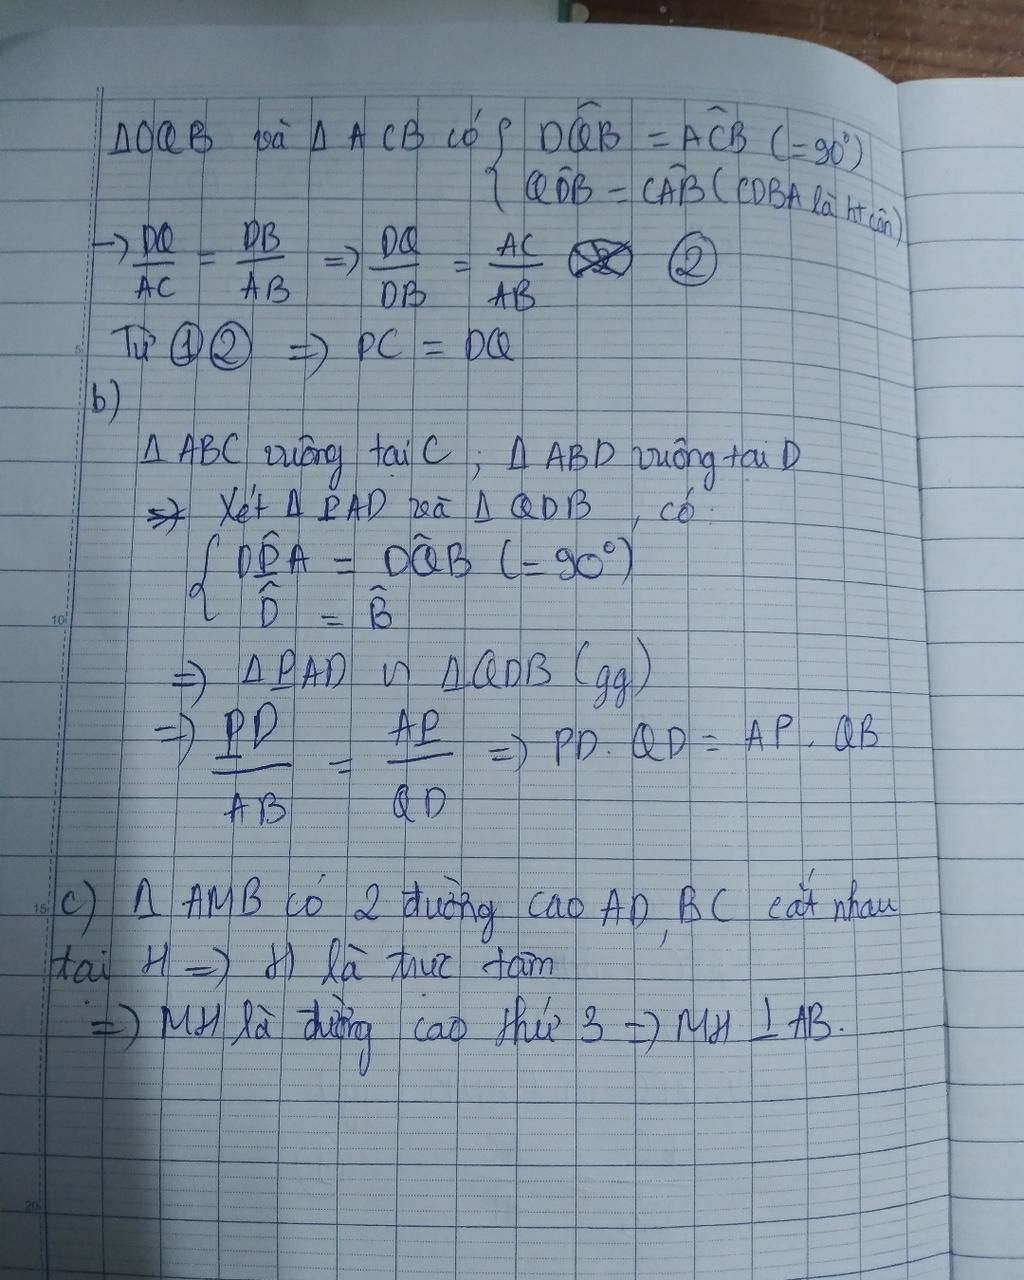 ΔDQB và Δ ACB có { DQ̂B = AĈB (=90°)
QD̂B = CÂB (CDBA là ht cân)
→ DQ/AC = DB/AB ⇒ DQ/DB = AC/AB ②
Từ ①② ⇒ PC = DQ
b)
Δ ABC vuông tại C ; Δ ABD vuông tại D
⇒ Xét Δ PAD và Δ QDB , có
{ DP̂A = DQ̂B (=90°)
D̂ = B̂
⇒ Δ PAD ∽ ΔQDB (gg)
⇒ PD/AB = AP/QD ⇒ PD . QD = AP . QB
c) Δ AMB có 2 đường cao AD, BC cắt nhau
tại H ⇒ H là trực tâm
⇒ MH là đường cao thứ 3 ⇒ MH ⊥ AB.
5
10
15
20